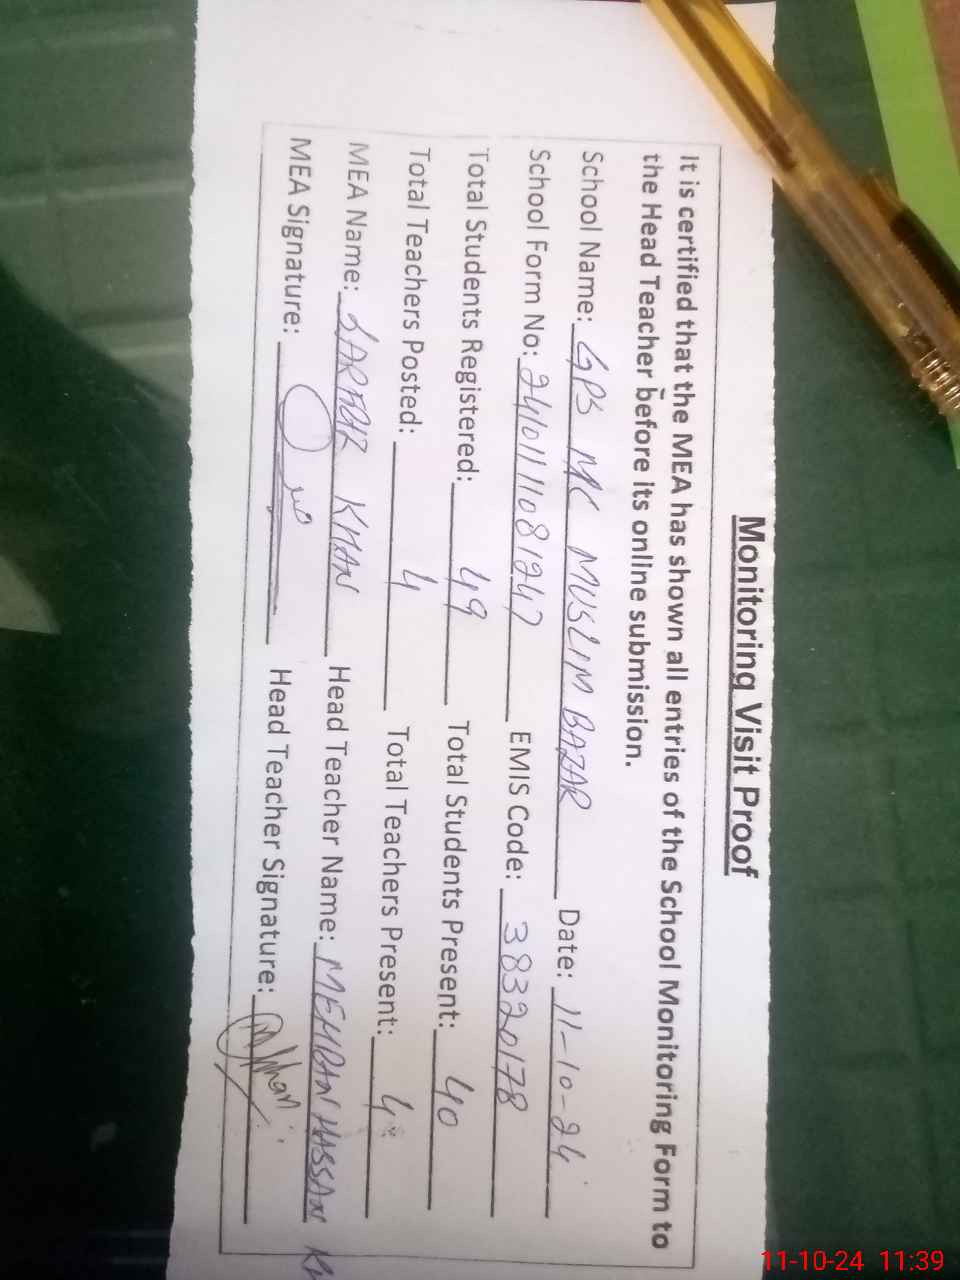 Monitoring Visit Proof
It is certified that the MEA has shown all entries of the School Monitoring Form to
the Head Teacher before its online submission.
School Name: GPS MC MUSLIM BAZAR Date: 11-10-24
School Form No: 2410111081247 EMIS Code: 38320178
Total Students Registered: 49 Total Students Present: 40
Total Teachers Posted: 4 Total Teachers Present: 4
MEA Name: SARFRAZ KHAN Head Teacher Name: MEHRAN HASSAN
MEA Signature: Head Teacher Signature:
11-10-24 11:39